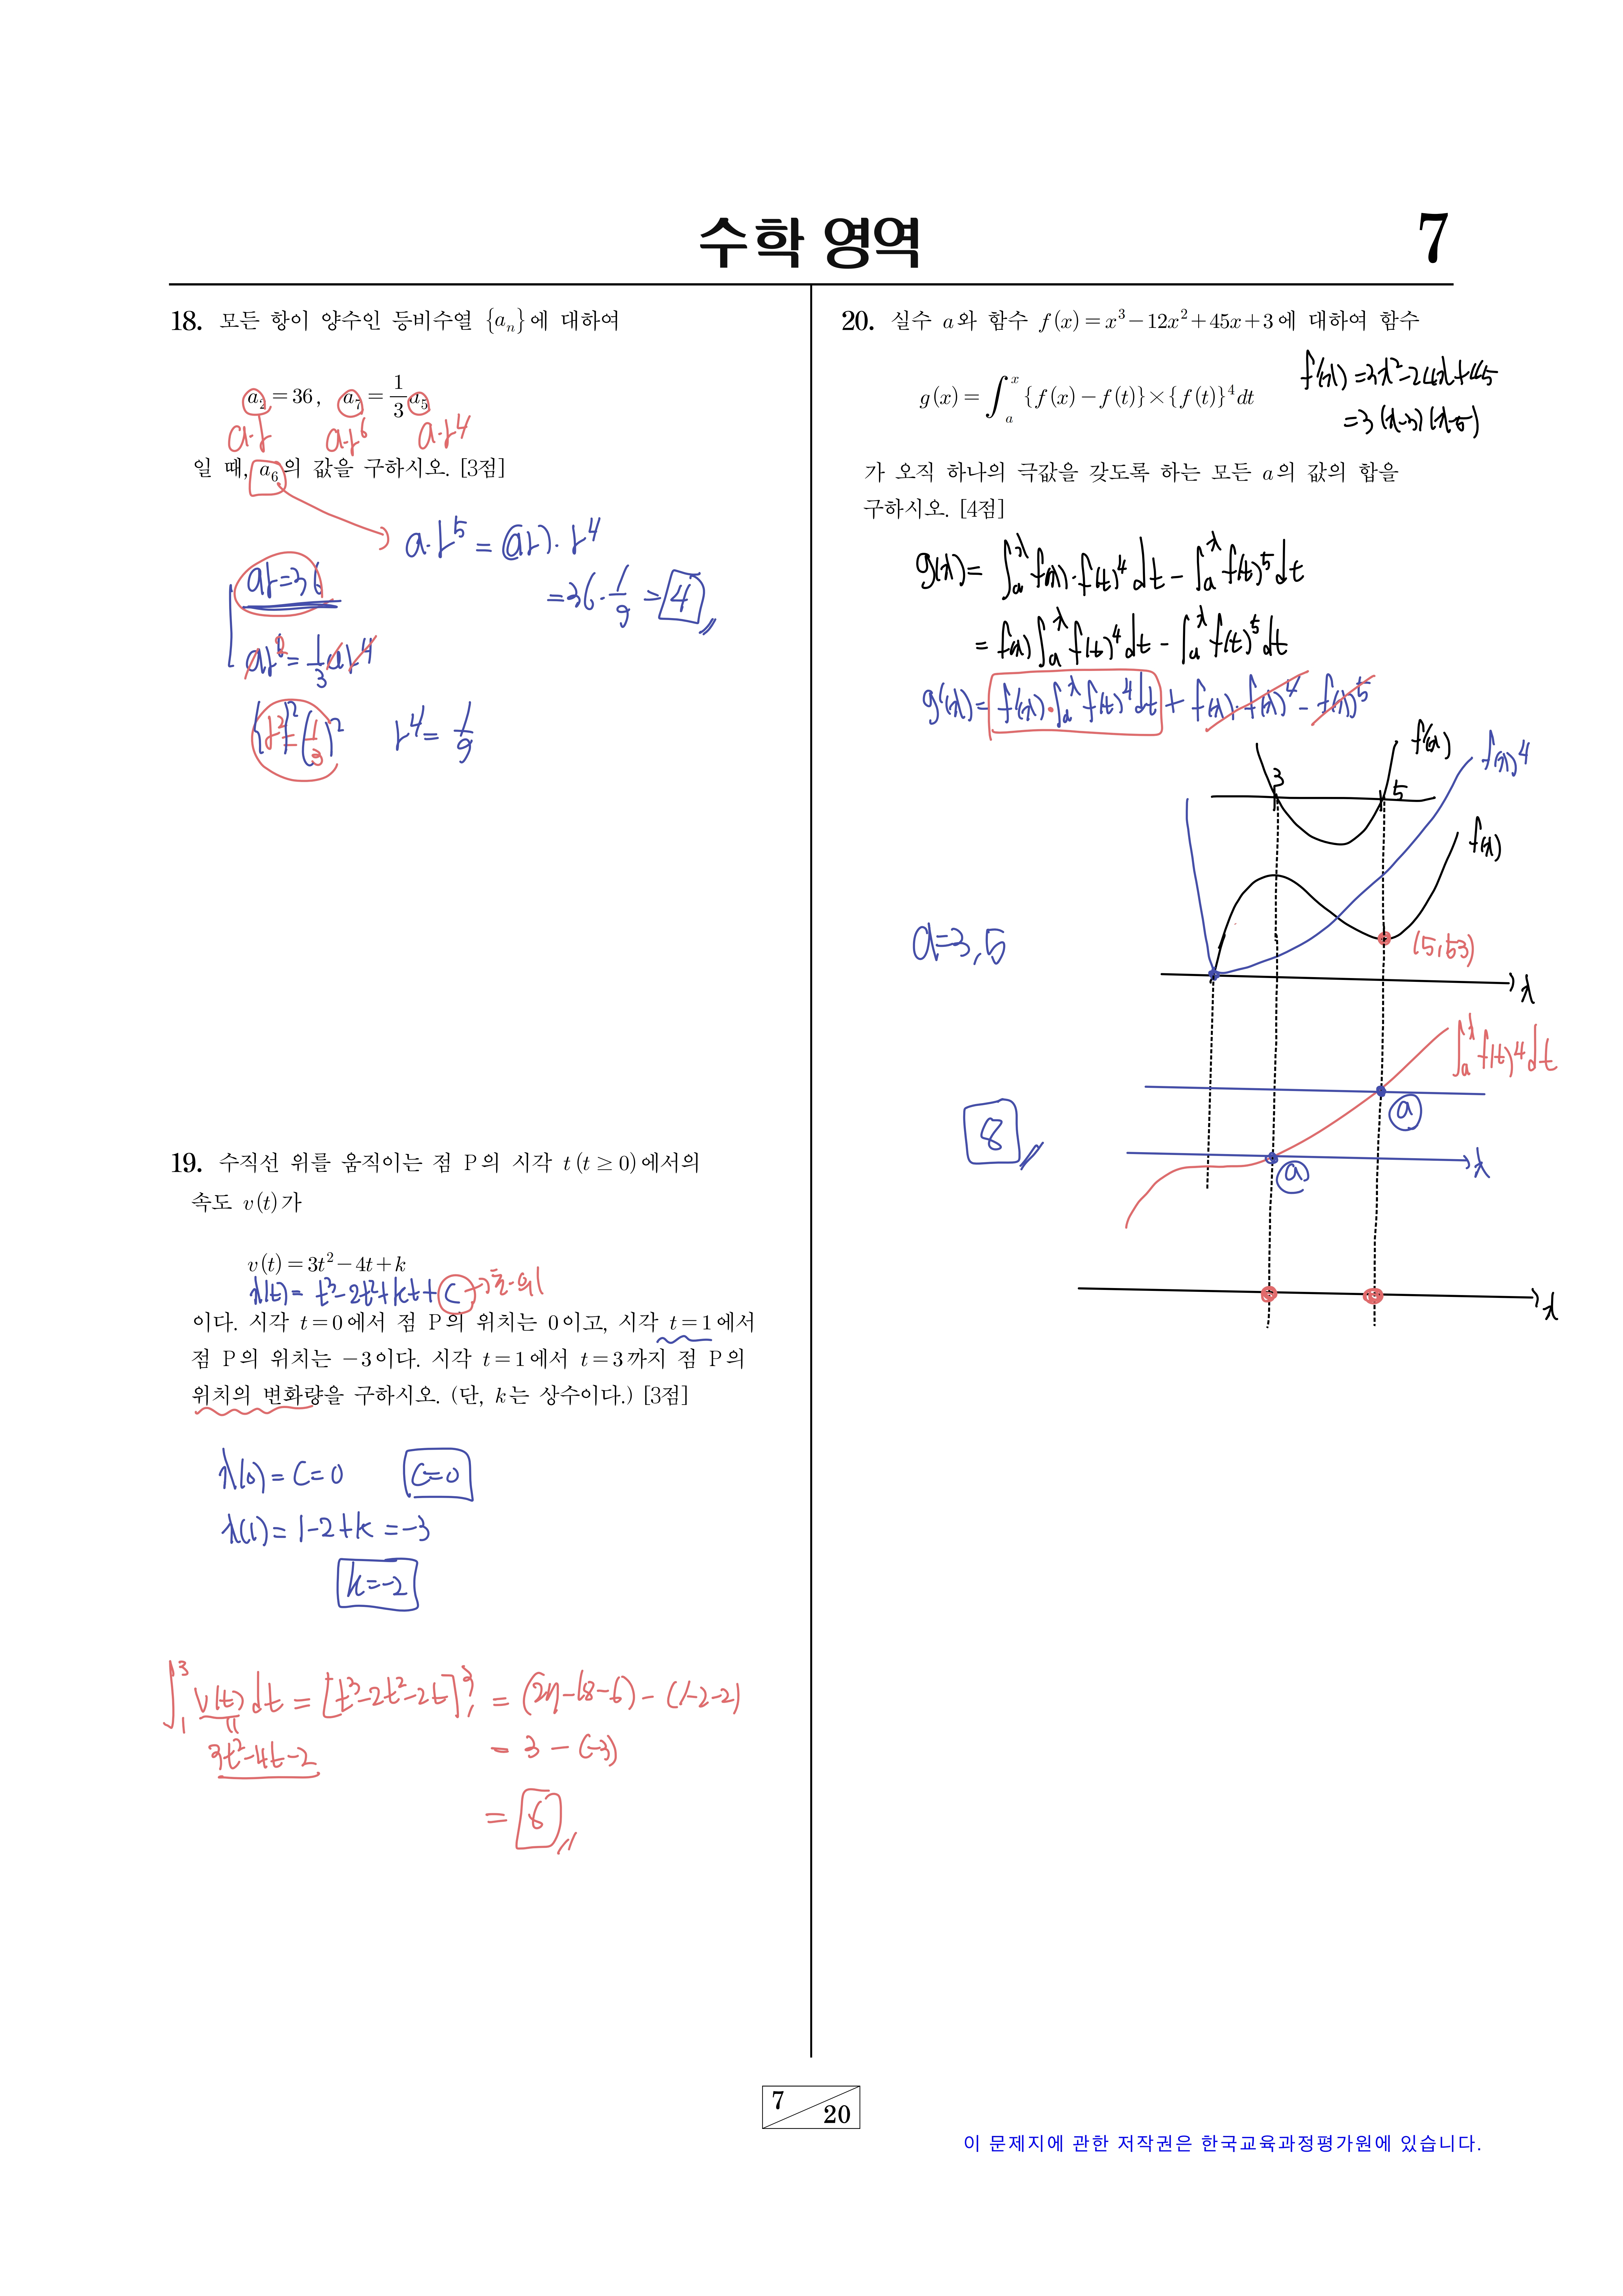 수학 영역
7
18. 모든 항이 양수인 등비수열 {aₙ}에 대하여
a₂ = 36, a₇ = 1/3 a₅
a·r a·r⁶ a·r⁴
일 때, a₆의 값을 구하시오. [3점]
a·r⁵ = (ar)·r⁴
= 36·1/9 = 4
ar=36
r⁴ = 1/9
19. 수직선 위를 움직이는 점 P의 시각 t(t ≥ 0)에서의
속도 v(t)가
v(t) = 3t² − 4t + k
x(t) = t³ − 2t² + kt + C
이다. 시각 t = 0에서 점 P의 위치는 0이고, 시각 t = 1에서
점 P의 위치는 −3이다. 시각 t = 1에서 t = 3까지 점 P의
위치의 변화량을 구하시오. (단, k는 상수이다.) [3점]
x(0) = C = 0 C=0
x(1) = 1−2+k = −3
k=−2
∫₁³ v(t) dt = [t³−2t²−2t]₁³ = (27−18−6) − (1−2−2)
3t²−4t−2
= 3 − (−3)
= 6
20. 실수 a와 함수 f(x) = x³ − 12x² + 45x + 3에 대하여 함수
f'(x) = 3x² − 24x + 45
= 3(x−3)(x−5)
g(x) = ∫ₐˣ {f(x) − f(t)} × {f(t)}⁴ dt
가 오직 하나의 극값을 갖도록 하는 모든 a의 값의 합을
구하시오. [4점]
g(x) = ∫ₐˣ f(x)·f(t)⁴ dt − ∫ₐˣ f(t)⁵ dt
= f(x) ∫ₐˣ f(t)⁴ dt − ∫ₐˣ f(t)⁵ dt
g'(x) = f'(x)·∫ₐˣ f(t)⁴ dt + f(x)·f(x)⁴ − f(x)⁵
f'(x)
f(x)⁴
3
5
f(x)
a=3,5
(5,53)
x
∫ₐˣ f(t)⁴ dt
a
8
x
a
x
7
20
이 문제지에 관한 저작권은 한국교육과정평가원에 있습니다.